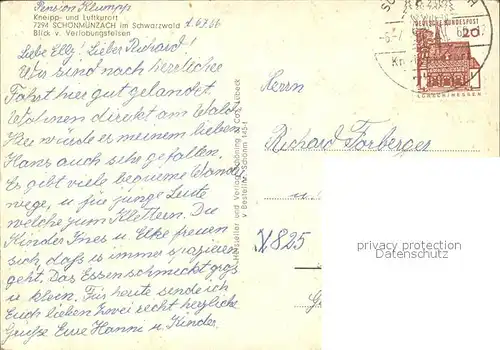 Pension Klumpp
Kneipp- und Luftkurort
7294 SCHÖNMÜNZACH im Schwarzwald 1.67.66
Blick v. Verlobungsfelsen
Liebe Elly! Lieber Richard!
Wir sind nach herrlicher
Fahrt hier gut gelandet.
Wohnen direkt am Wald.
Hier würde es meinem lieben
Hans auch sehr gefallen.
Es gibt viele bequeme Wander
wege, u für junge Leute
welche zum Klettern. Die
Kinder Ines u. Elke freuen
sich, daß es immer spazieren
geht. Das Essen schmeckt groß
u klein. Für heute sende ich
Euch lieben zwei recht herzliche
Grüße Eure Hanni u. Kinder.
Hersteller und Verlag
v Bestellnr. Schönm 145
DEUTSCHE BUNDESPOST
20
LORSCH/HESSEN
Herrn
Richard Farberger
u
X 825
privacy protection
Datenschutz